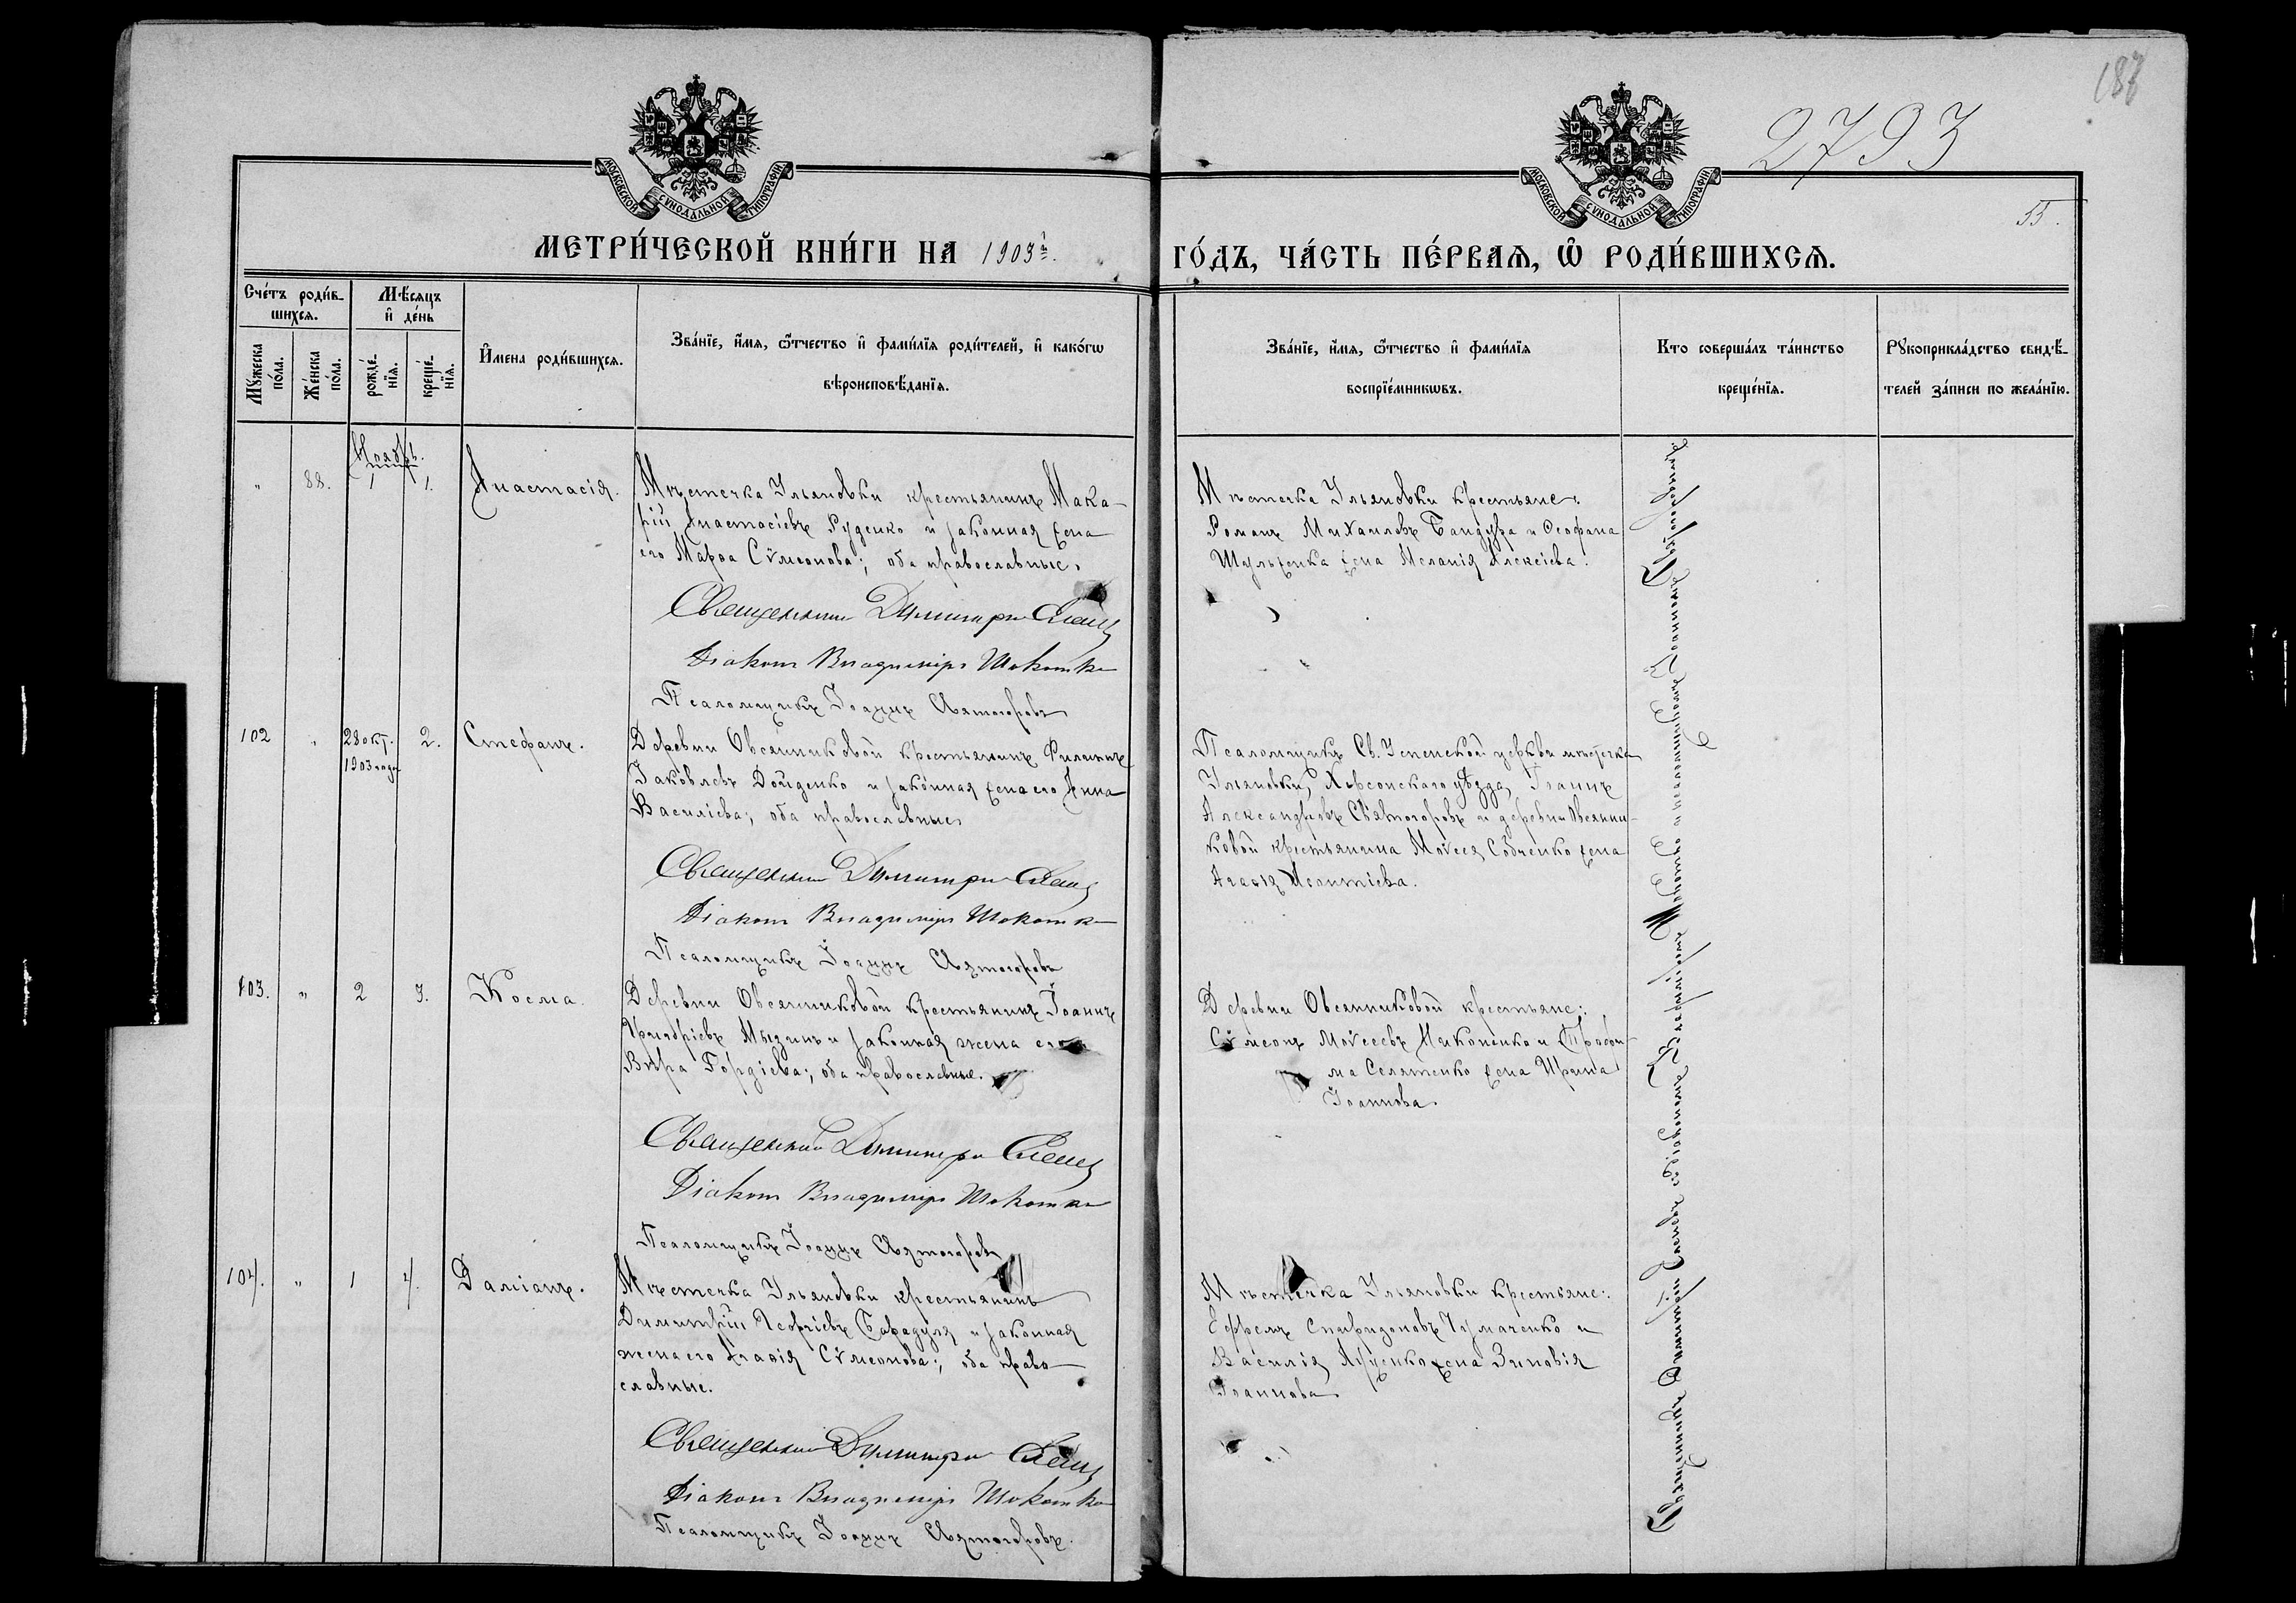 187
2793
55.
МОСКОВСКОЙ СѴНОДАЛЬНОЙ ТИПОГРАФІИ
МОСКОВСКОЙ СѴНОДАЛЬНОЙ ТИПОГРАФІИ
МЕТРИ́ЧЕСКОЙ КНИ́ГИ НА 1903й. ГО́ДЪ, ЧА́СТЬ ПЕ́РВАѦ, Ѽ РОДИ́ВШИХСѦ.
Сче́тъ роди́в-
шихсѧ.
Мꙋ́жеска
по́ла.
Же́нска
по́ла.
Мѣ́сѧцъ
и҆ де́нь
рожде́-
нїѧ.
креще́-
нїѧ.
И҆мена роди́вшихсѧ.
Зва́нїе, и҆́мѧ, ѻ҆́тчество и҆ фами́лїѧ роди́телей, и҆ како́гѡ
вѣроисповѣ́данїѧ.
Зва́нїе, и҆́мѧ, ѻ҆́тчество и҆ фами́лїѧ
воспрїе́мникѡвъ.
Кто соверша́лъ та́инство
креще́нїѧ.
Рꙋкоприкла́дство свидѣ́-
телей за́писи по жела́нїю.
Ноябрь.
" 88. 1 1. Анастасія.
Мѣстечка Ульяновки крестьянинъ Мака-
рій Анастасіевъ Руденко и законная жена
его Марѳа Сѵмеонова; оба православные.
Священникъ Димитрій
Діаконъ Владиміръ Мокотко
Псаломщикъ Іоаннъ Святогоровъ
Мѣстечка Ульяновки крестьяне:
Романъ Михаиловъ Бандура и Ѳеофана
Шульженка жена Меланія Алексіева.
102 " 28 окт. 2. Стефанъ.
1903 года
Деревни Овсянниковой крестьянинъ Филиппъ
Іаковлевъ Дойденко и законная жена его Анна
Василіева; оба православные.
Священникъ Димитрій
Діаконъ Владиміръ Мокотко
Псаломщикъ Іоаннъ Святогоровъ
Псаломщикъ Св. Успенской церкви мѣстечка
Ульяновки, Херсонскаго уѣзда, Іоаннъ
Александровъ Святогоровъ и деревни Овсянни-
ковой крестьянина Моѵсея Собченко жена
Агаѳія
103. " 2 3. Косма.
Деревни Овсянниковой крестьянинъ Іоаннъ
Григоріевъ Мызинъ и законная жена его
Вѣра Гордіева; оба православные.
Священникъ Димитрій
Діаконъ Владиміръ Мокотко
Псаломщикъ Іоаннъ Святогоровъ
Деревни Овсянниковой крестьяне:
Сѵмеонъ Моѵсеевъ Никоненко и Трофи-
ма Селятенко жена Ирина
Іоаннова.
104. " 1 4. Даміанъ.
Мѣстечка Ульяновки крестьянинъ
Димитрій Георгіевъ Барадуля и законная
жена его Агаѳія Сѵмеонова; оба право-
славные.
Священникъ Димитрій
Діаконъ Владиміръ Мокотко
Псаломщикъ Іоаннъ Святогоровъ.
Мѣстечка Ульяновки крестьяне:
Ефремъ Спиридоновъ Чумаченко и
Василія жена Зиновія
Іоаннова
Священникъ Димитрій съ діакономъ Владиміромъ Мокотко и псаломщикомъ Іоанномъ Святогоровымъ.